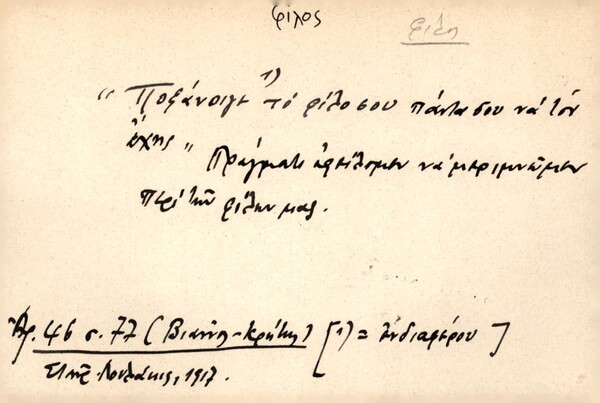 φίλος
φίλη
1)
" Ποξάνοιγε τό φίλο σου πάντα σου νά τόν
ἔχης " Πράγματι ὀφείλομεν νά μεριμνῶμεν
περί τῶν φίλων μας.
Ἀρ. 46 σ. 77 (Βιάννος-Κρήτης) [1) = ἐνδιαφέρου]
1917.